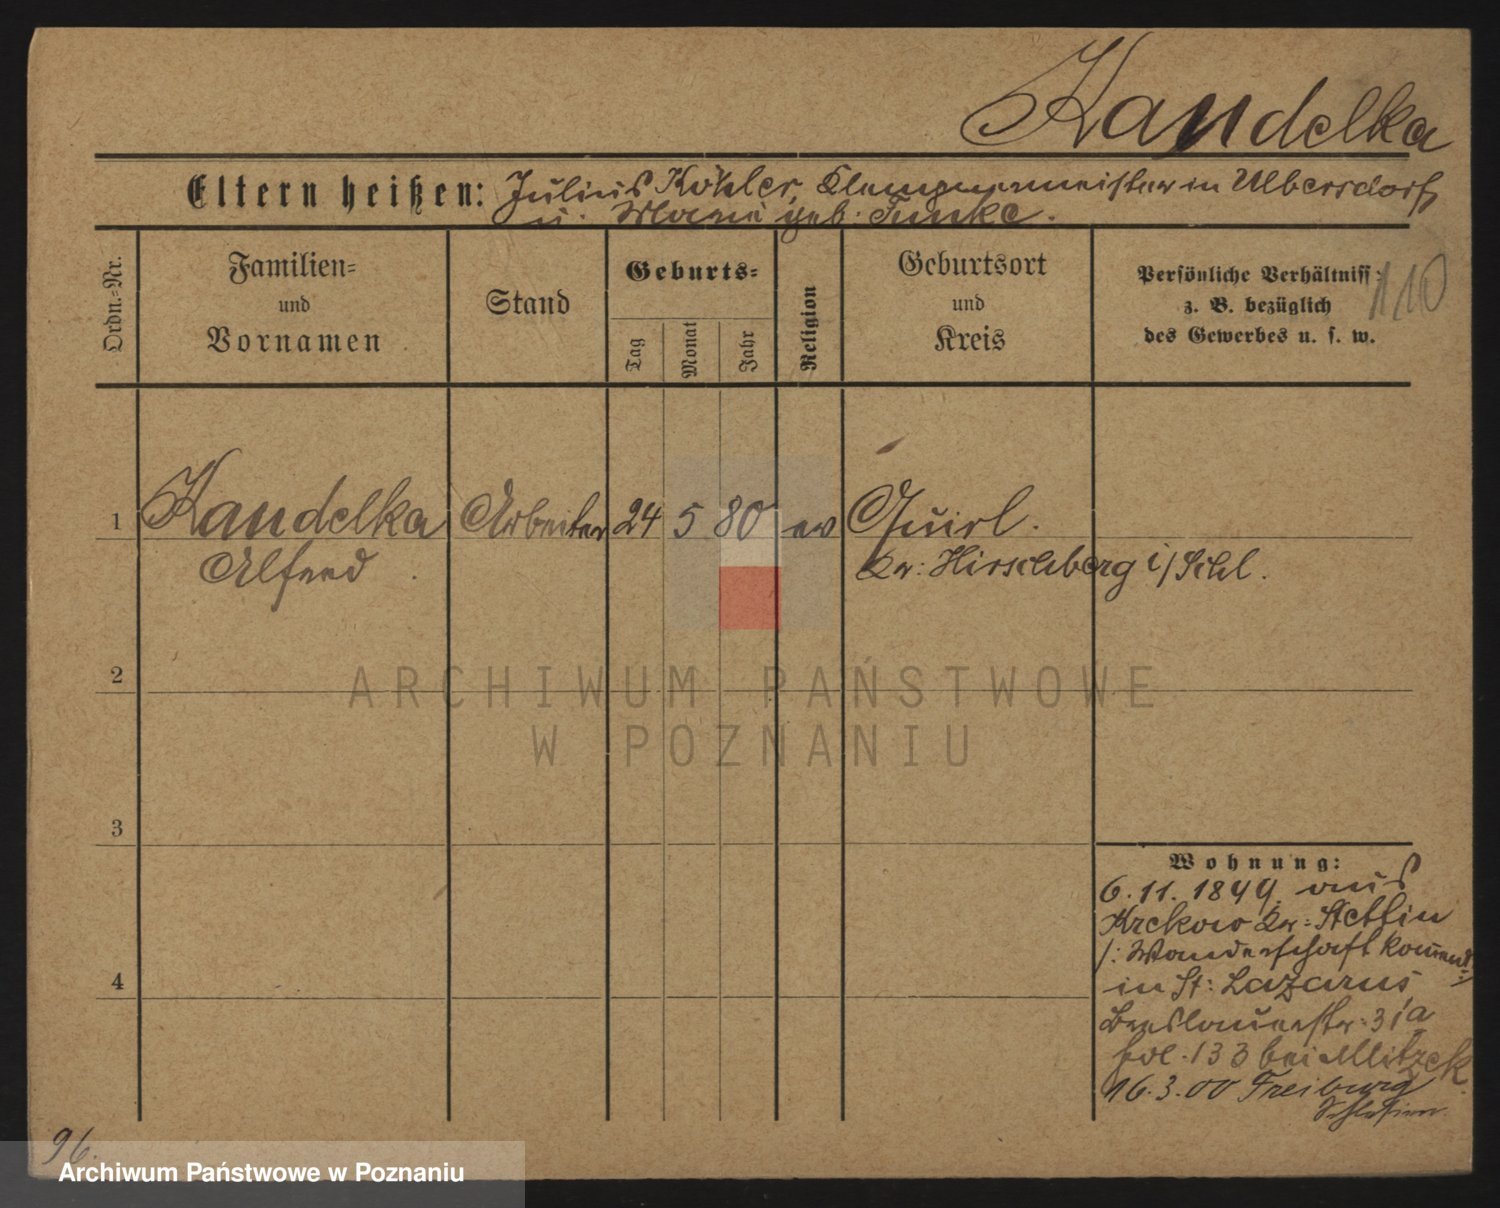 Kandelka
Eltern heißen: Julius Köhler, Klempnermeister in Ulbersdorf
u. Marie geb. Funke.
Ordn.-Nr.
Familien-
und
Vornamen
Stand
Geburts-
Tag
Monat
Jahr
Religion
Geburtsort
und
Kreis
Persönliche Verhältniss
z. B. bezüglich
des Gewerbes u. s. w.
110
1 Kandelka Arbeiter 24 5 80 ev Quirl.
Alfred Kr: Hirschberg i/Schl.
2
ARCHIWUM PAŃSTWOWE
W POZNANIU
3
Wohnung:
6.11.1899. aus
Krekow Kr: Stettin
/: Wanderschaft kommend
4
in St: Lazarus
Breslauerstr: 31a
pol. 133 bei Mitzek
16.3.00 Freiburg
Schlesien
96.
Archiwum Państwowe w Poznaniu